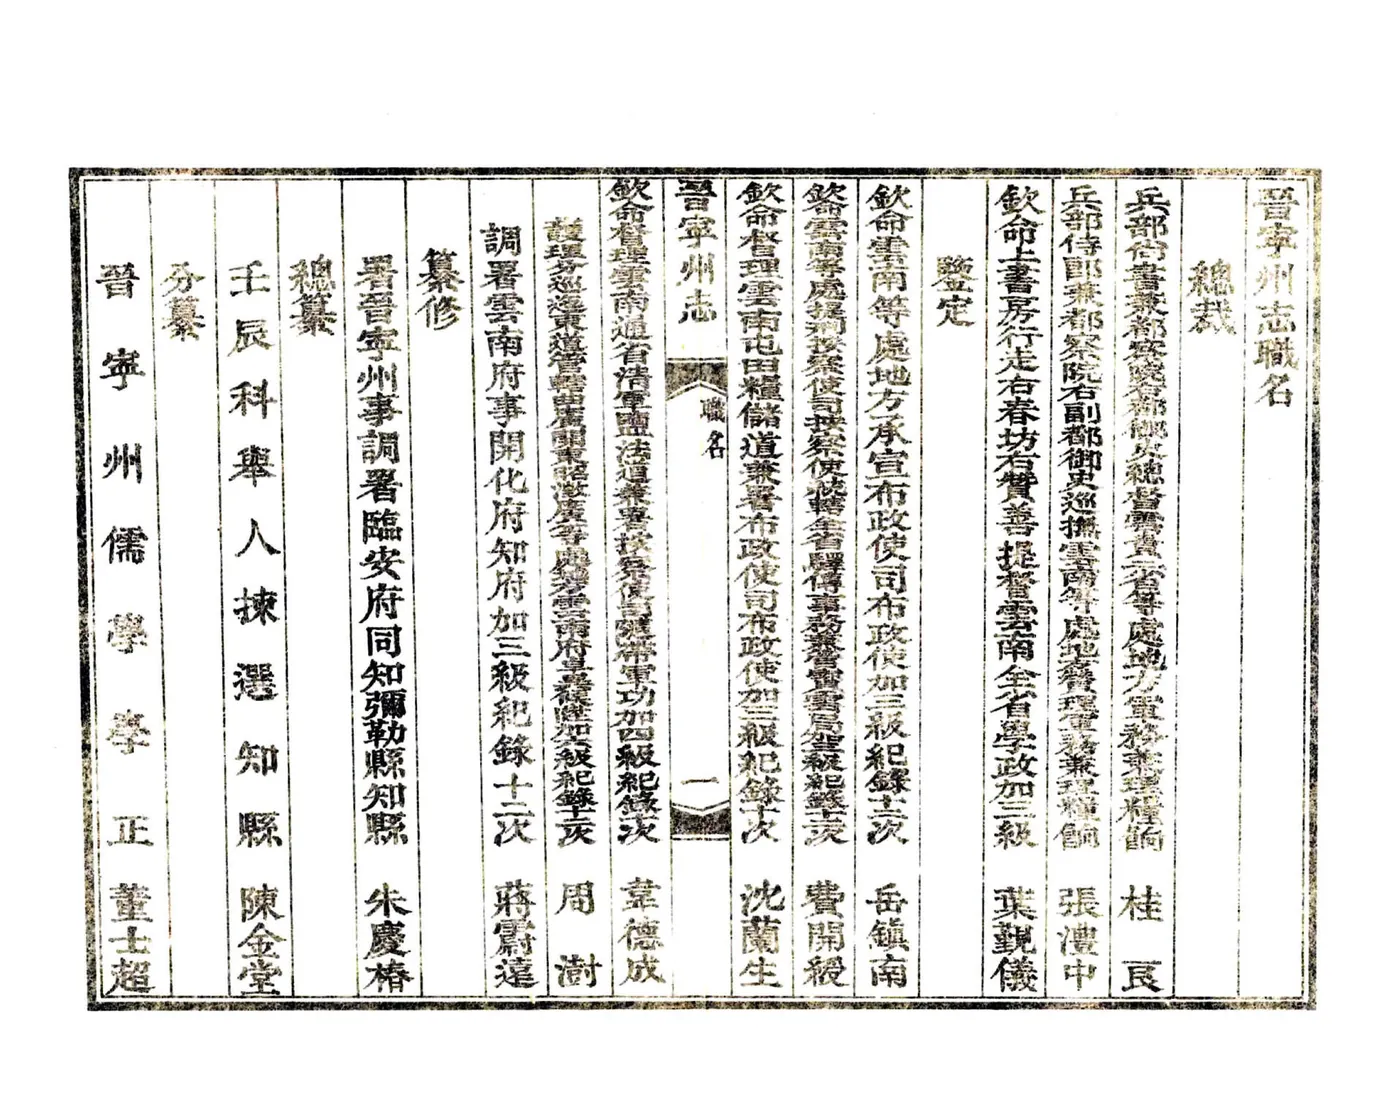 晉寧州志職名
總裁
兵部尚書兼都察院右都御史總督雲貴二省等處地方軍務兼理糧餉 桂良
兵部侍郎兼都察院右副都御史巡撫雲南等處地方贊理軍務兼理糧餉 張澧中
欽命上書房行走右春坊右贊善提督雲南全省學政加三級 葉覲儀
鑒定
欽命雲南等處地方承宣布政使司布政使加三級紀錄十二次 岳鎮南
欽命雲南等處提刑按察使司按察使兼轄全省驛傳事務 費開綬
欽命督理雲南屯田糧儲道兼署布政使司布政使加三級紀錄十次 沈蘭生
晉寧州志
職名
一
欽命督理雲南通省清軍鹽法道兼署按察使司隨帶軍功加四級紀錄一次 韋德成
護理分巡迤東道管轄曲 周澍
調署雲南府事開化府知府加三級紀錄十二次 蔣霨遠
纂修
署晉寧州事調署臨安府同知彌勒縣知縣 朱慶椿
總纂
壬辰科舉人揀選知縣 陳金堂
分纂
晉寧州儒學學正 董士超